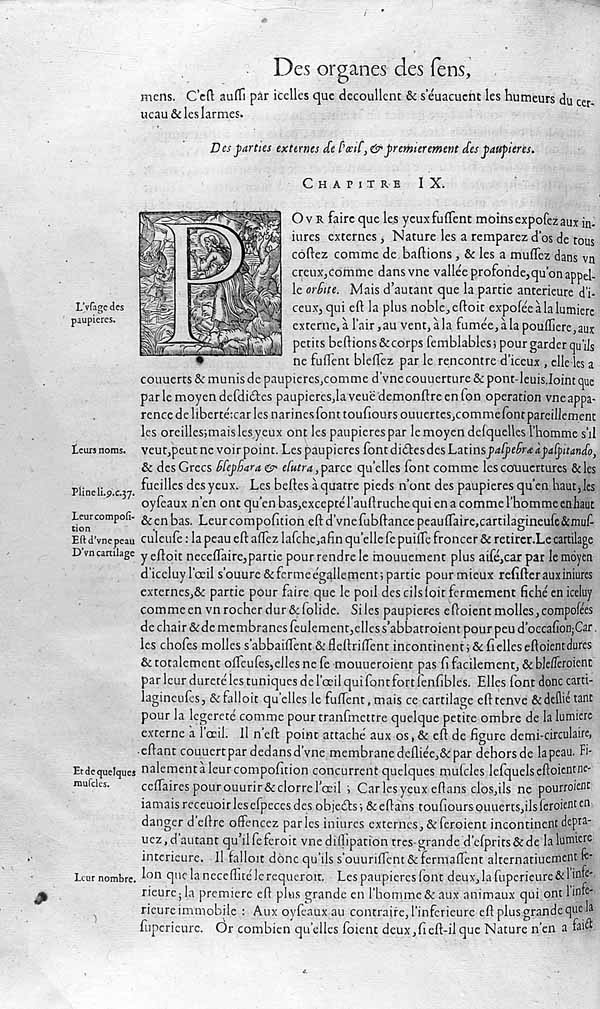 Des organes des ſens,
mens. C'eſt auſſi par icelles que decoullent & s'éuacuent les humeurs du cer-
ueau & les larmes.
Des parties externes de l'œil, & premierement des paupieres.
CHAPITRE IX.
POVR faire que les yeux fuſſent moins expoſez aux in-
iures externes, Nature les a remparez d'os de tous
coſtez comme de baſtions, & les a muſſez dans vn
creux, comme dans vne vallée profonde, qu'on appel-
le orbite. Mais d'autant que la partie anterieure d'i-
L'vſage des
ceux, qui eſt la plus noble, eſtoit expoſée à la lumiere
paupieres.
externe, à l'air, au vent, à la fumée, à la pouſſiere, aux
petits beſtions & corps ſemblables; pour garder qu'ils
ne fuſſent bleſſez par le rencontre d'iceux, elle les a
couuerts & munis de paupieres, comme d'vne couuerture & pont-leuis. Ioint que
par le moyen deſdictes paupieres, la veuë demonſtre en ſon operation vne appa-
rence de liberté: car les narines ſont touſiours ouuertes, comme ſont pareillement
les oreilles; mais les yeux ont les paupieres par le moyen deſquelles l'homme s'il
Leurs noms.
veut, peut ne voir point. Les paupieres ſont dictes des Latins palpebræ à palpitando,
& des Grecs blephara & elutra, parce qu'elles ſont comme les couuertures & les
Pline li. 9. c. 37.
fueilles des yeux. Les beſtes à quatre pieds n'ont des paupieres qu'en haut, les
oyſeaux n'en ont qu'en bas, excepté l'auſtruche qui en a comme l'homme en haut
Leur compoſi-
tion
& en bas. Leur compoſition eſt d'vne ſubſtance peauſſaire, cartilagineuſe & muſ-
Eſt d'vne peau
culeuſe: la peau eſt aſſez laſche, afin qu'elle ſe puiſſe froncer & retirer. Le cartilage
D'vn cartilage
y eſtoit neceſſaire, partie pour rendre le mouuement plus aiſé, car par le moyen
d'iceluy l'œil s'ouure & ferme égallement; partie pour mieux reſiſter aux iniures
externes, & partie pour faire que le poil des cils ſoit fermement fiché en iceluy
comme en vn rocher dur & ſolide. Si les paupieres eſtoient molles, compoſées
de chair & de membranes ſeulement, elles s'abbatroient pour peu d'occaſion; Car
les choſes molles s'abbaiſſent & fleſtriſſent incontinent; & ſi elles eſtoient dures
& totalement oſſeuſes, elles ne ſe mouueroient pas ſi facilement, & bleſſeroient
par leur dureté les tuniques de l'œil qui ſont fort ſenſibles. Elles ſont donc carti-
lagineuſes, & falloit qu'elles le fuſſent, mais ce cartilage eſt tenve & deſlié tant
pour la legereté comme pour tranſmettre quelque petite ombre de la lumiere
externe à l'œil. Il n'eſt point attaché aux os, & eſt de figure demi-circulaire,
eſtant couuert par dedans d'vne membrane deſliée, & par dehors de la peau. Fi-
Et de quelques
nalement à leur compoſition concurrent quelques muſcles leſquels eſtoient ne-
muſcles.
ceſſaires pour ouurir & clorre l'œil; Car les yeux eſtans clos, ils ne pourroient
iamais receuoir les eſpeces des obiects; & eſtans touſiours ouuerts, ils ſeroient en
danger d'eſtre offencez par les iniures externes, & ſeroient incontinent deprа-
uez, d'autant qu'il ſe feroit vne diſſipation tres-grande d'eſprits & de la lumiere
interieure. Il falloit dônc qu'ils s'ouuriſſent & fermaſſent alternatiuement ſe-
Leur nombre.
lon que la neceſſité le requeroit. Les paupieres ſont deux, la ſuperieure & l'infe-
rieure; la premiere eſt plus grande en l'homme & aux animaux qui ont l'infe-
rieure immobile: Aux oyſeaux au contraire, l'inferieure eſt plus grande que la
ſuperieure. Or combien qu'elles ſoient deux, ſi eſt-il que Nature n'en a faict